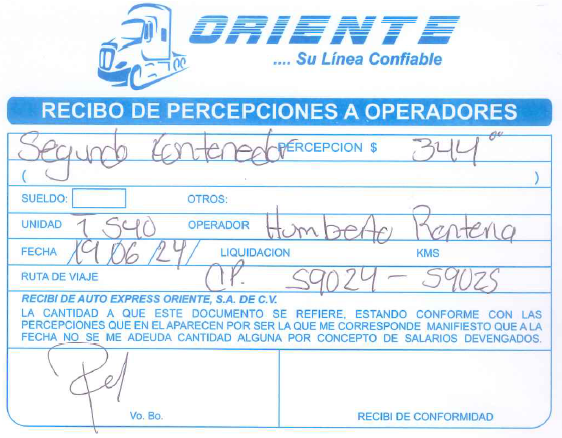 ORIENTE
.... Su Línea Confiable
RECIBO DE PERCEPCIONES A OPERADORES
Segundo Contenedor PERCEPCION $ 344 00
( )
SUELDO: OTROS:
UNIDAD T S40 OPERADOR Humberto Renteria
FECHA 19/06/24/ LIQUIDACION KMS
RUTA DE VIAJE C.P. S9024 - S9025
RECIBI DE AUTO EXPRESS ORIENTE, S.A. DE C.V.
LA CANTIDAD A QUE ESTE DOCUMENTO SE REFIERE, ESTANDO CONFORME CON LAS
PERCEPCIONES QUE EN EL APARECEN POR SER LA QUE ME CORRESPONDE MANIFIESTO QUE A LA
FECHA NO SE ME ADEUDA CANTIDAD ALGUNA POR CONCEPTO DE SALARIOS DEVENGADOS.
Vo. Bo. RECIBI DE CONFORMIDAD